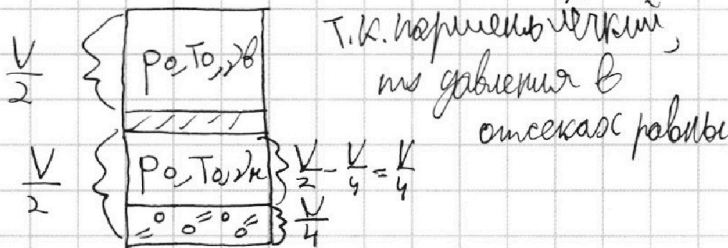 V/2 { p₀, T₀, νв
Т.К. поршень лёгкий,
то давления в
отсеках равны
V/2 { p₀, T₀, νн } V/2 - V/4 = V/4
} V/4